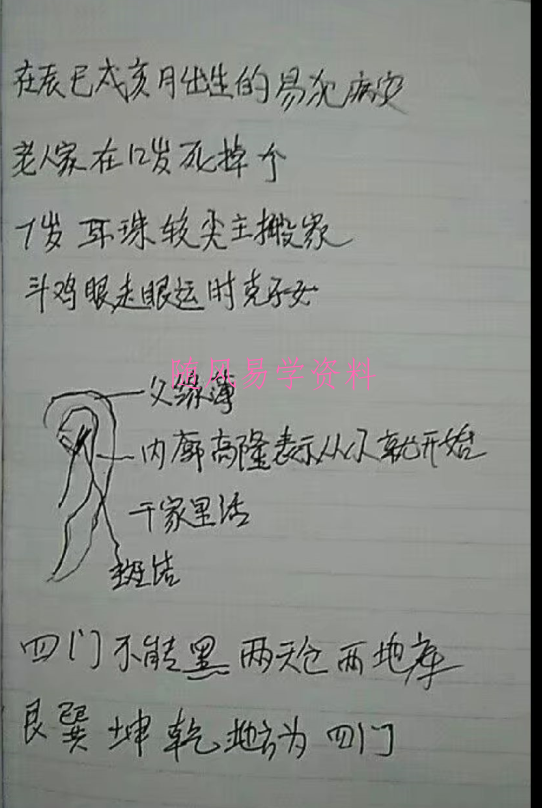 在辰巳戌亥月出生的易犯病灾
老人家在12岁死掉个
7岁耳珠较尖主搬家
斗鸡眼走眼运时克子女
随风易学资料
父缘薄
内廓高隆表示从小就开始
干家里活
斑结
四门不能黑 两天仓两地库
艮巽坤乾地方为四门